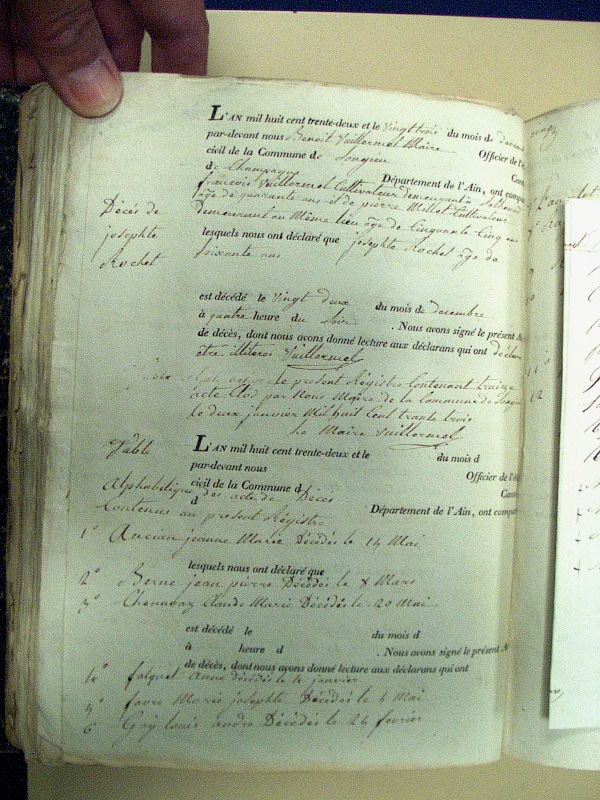 L'AN mil huit cent trente-deux et le vingt trois du mois de decem
par-devant nous Benoit Vuillermel Maire Officier de l'é
civil de la Commune de Songieu Can
de Champagne Département de l'Ain, ont compa
francois Vuillermel Cultivateur demeurant a
age de quarante ans et de pierre Millet Cultivateur
Décès de demeurant au Même lieu âge de Cinquante Cinq ans
josephte lesquels nous ont déclaré que josephte Rochet âge de
Rochet soixante ans
est décédé le vingt deux du mois de decembre
à quatre heure du soir . Nous avons signé le présent A
de décès, dont nous avons donné lecture aux déclarans qui ont déclaré
être illiteres Vuillermel
le present Régistre Contenant traize
acte Clos par Nous Maire de la Commune de
le deux janvier Mil huit Cent trante trois
Le Maire Vuillermel
Table L'AN mil huit cent trente-deux et le du mois d
par-devant nous Officier de l'é
civil de la Commune d Can
Alphabetique des acte de Décès
d Département de l'Ain, ont compa
Contenus au present Régistre
1° Ancian jeanne Marie Décédés le 14 Mai
lesquels nous ont déclaré que
2° Berne jean pierre Décédés le 8 Mars
3° Chenavaz Claude Marie Décédés le 20 Mai
est décédé le du mois d
à heure d . Nous avons signé le présent A
de décès, dont nous avons donné lecture aux déclarans qui ont
falquet Anne décédés le janvier
favre Marie josephte Décédés le 4 Mai
6 Goy louis andré Décédés le 24 fevrier